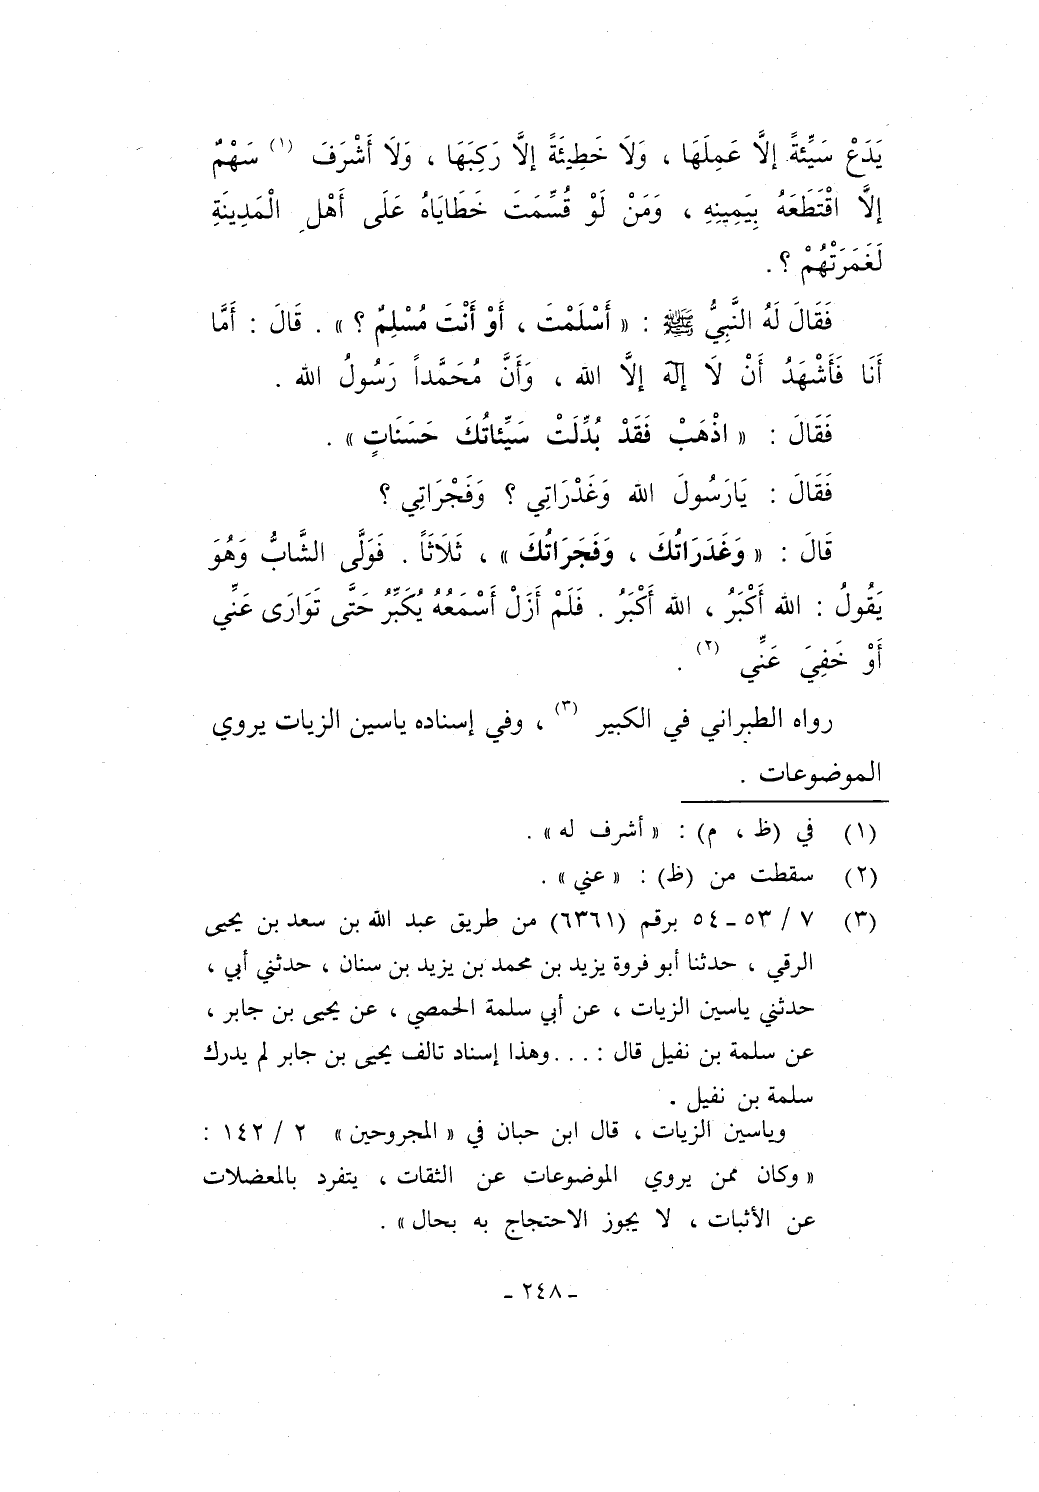 يَدَعْ سَيِّئَةً إلاَّ عَمِلَهَا ، وَلَا خَطِيئَةً إلاَّ رَكِبَهَا ، وَلَا أَشْرَفَ (١) سَهْمٌ
إلاَّ اقْتَطَعَهُ بِيَمِينِهِ ، وَمَنْ لَوْ قُسِّمَتَ خَطَايَاهُ عَلَى أَهْلِ الْمَدِينَةِ
لَغَمَرَتْهُمْ ؟ .
فَقَالَ لَهُ النَّبِيُّ ﷺ : « أَسْلَمْتَ ، أَوْ أَنْتَ مُسْلِمٌ ؟ » . قَالَ : أَمَّا
أَنَا فَأَشْهَدُ أَنْ لَا إلَهَ إلاَّ الله ، وَأَنَّ مُحَمَّداً رَسُولُ الله .
فَقَالَ : « اذْهَبْ فَقَدْ بُدِّلَتْ سَيِّئاتُكَ حَسَنَاتٍ » .
فَقَالَ : يَارَسُولَ الله وَغَدْرَاتِي ؟ وَفَجْرَاتِي ؟
قَالَ : « وَغَدَرَاتُكَ ، وَفَجَرَاتُكَ » ، ثَلَاثَاً . فَوَلَّى الشَّابُّ وَهُوَ
يَقُولُ : الله أَكْبَرُ ، الله أَكْبَرُ . فَلَمْ أَزَلْ أَسْمَعُهُ يُكَبِّرُ حَتَّى تَوَارَى عَنِّي
أَوْ خَفِيَ عَنِّي (٢) .
رواه الطبراني في الكبير (٣) ، وفي إسناده ياسين الزيات يروي
الموضوعات .
(١) في (ظ ، م) : « أشرف له » .
(٢) سقطت من (ظ) : « عني » .
(٣) ٧ / ٥٣ ـ ٥٤ برقم (٦٣٦١) من طريق عبد الله بن سعد بن يحيى
الرقي ، حدثنا أبو فروة يزيد بن محمد بن يزيد بن سنان ، حدثني أبي ،
حدثني ياسين الزيات ، عن أبي سلمة الحمصي ، عن يحيى بن جابر ،
عن سلمة بن نفيل قال : . . . وهذا إسناد تالف يحيى بن جابر لم يدرك
سلمة بن نفيل .
وياسين الزيات ، قال ابن حبان في « المجروحين » ٢ / ١٤٢ :
« وكان ممن يروي الموضوعات عن الثقات ، يتفرد بالمعضلات
عن الأثبات ، لا يجوز الاحتجاج به بحال » .
ـ ٢٤٨ ـ